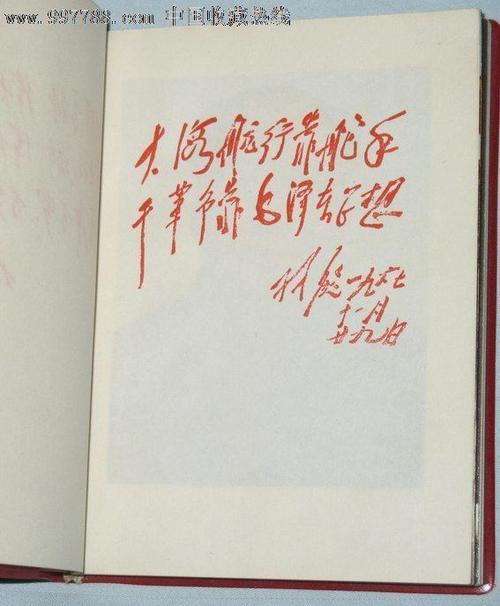 www.997788.com 中国收藏热线
大海航行靠舵手
干革命靠毛泽东思想
林彪一九六七
十一月
廿九日